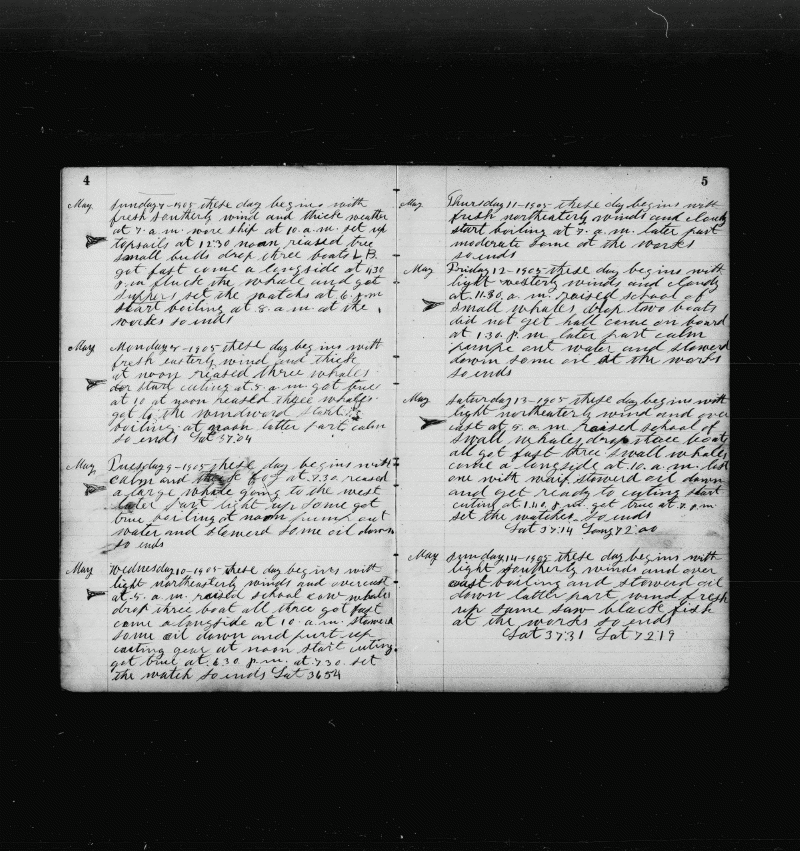 4
May Sunday 7-1905 these day begins with
fresh southerly wind and thick weather
at 7. a.m. wore ship at 10. a.m. set up
topsails at 12.30 noon reased tree
small bulls drop three boats L.B.
got fast come a longside at 4.30
p.m fluck the whale and got
suppers set the watchs at 6. p.m
start boiling at 8. a.m. at the
works so ends
May Monday 8-1905 these day begins with
fresh easterly wind and thick
at noon reased three whales
start cuting at 5. a.m. got true
at 10 at noon reased three whales
got to the windword start
boiling at noon latter part calm
so ends Lat 37.04
May Tuesday 9-1905 these day begins with
calm and fog at 7.30. reased
a large whale going to the west
later part light up some got
true boiling at noon pump out
water and stowerd some oil down
so ends
May Wednesday 10-1905 these day begins with
light northeasterly winds and overcast
at 5. a.m. raised school cow whales
drop three boat all three got fast
come alongside at 10. a.m. stowerd
some oil down and purt up
cuting gear at noon start cuting
got true at 6.30 p.m. at 7.30. set
the watch so ends Lat 3654
5
May Thursday 11-1905 these day begins with
fresh northeaterly winds and cloudy
start boiling at 7. a.m. later part
moderate some at the works
so ends
May Friday 12-1905 these day begins with
light westerly winds and cloudy
at 11.30. a.m. raised school of
small whales drop two boats
did not get hall come on board
at 1.30. p.m. later part calm
pumpe out water and stowerd
down some oil at the works
so ends
May Saturday 13-1905 these day begins with
light northeaterly wind and over
cast at 5 a.m raised school of
small whales drop three boats
all got fast three small whales
come a longside at 10. a.m. lost
one with waif stowerd oil down
and get ready to cuting start
cuting at 1.40. p.m. get true at 7. p.m.
set the watches so ends
Lat 37.14 Long 72.00
May Sunday 14-1905 these day begins with
light southerly winds and over
cast boiling and stowerd oil
down latter part wind fresh
up some saw black fish
at the works so ends
Lat 37.31 Lat 72.19